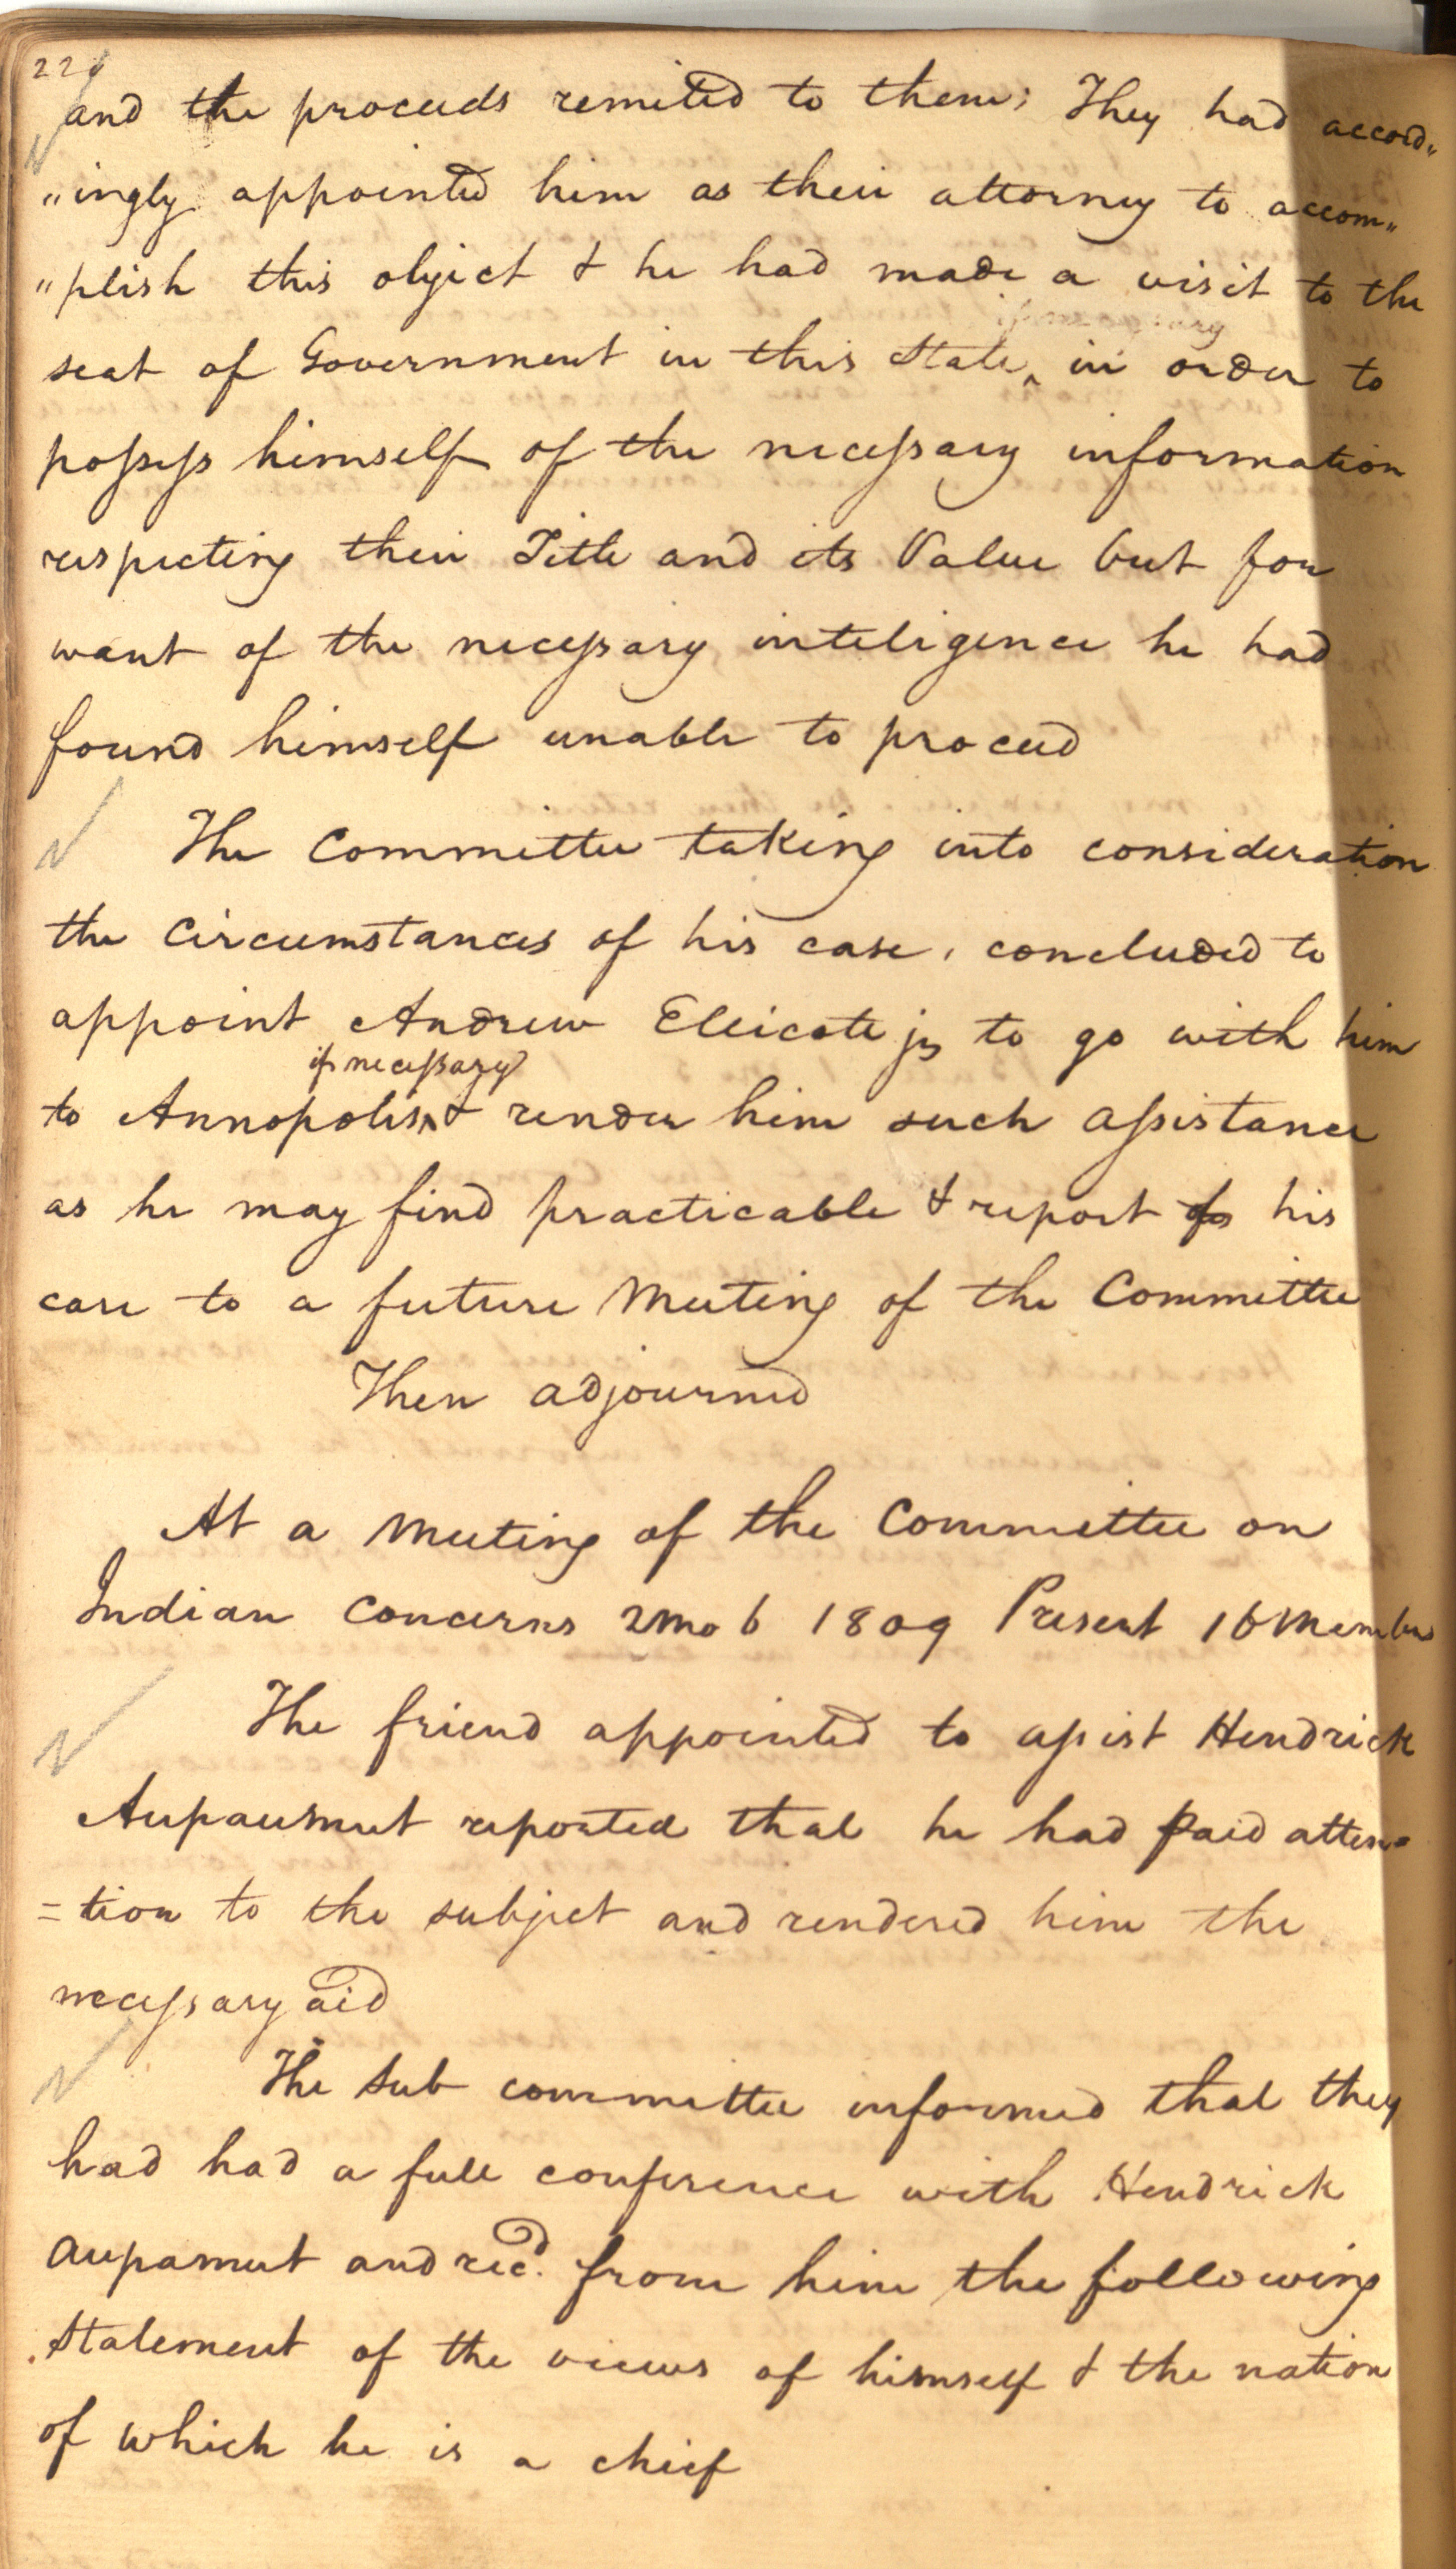 and the proceeds remited to them; They had accord„
„ingly appointed him as their attorney to accom„
„plish this object & he had made a visit to the
if necessary
seat of Government in this State ‸ in order to
possess himself of the necessary information
respecting their Title and its Value but for
want of the necessary inteligence he had
found himself unable to proceed
The Committee taking into consideration
the Circumstances of his case, concluded to
appoint Andrew Ellicote jr to go with him
if necessary
to Annopolis ‸ & render him such assistance
as he may find practicable & report his
case to a future Meeting of the Committee
Then adjourned
At a Meeting of the Committee on
Indian Concerns 2mo 6 1809 Present 16 Members
The friend appointed to assist Hendrick
Aupaumut reported that he had paid atten=
=tion to the subject and rendered him the
necessary aid
The Sub committee informed that they
had had a full conference with Hendrick
Aupamut and recd. from him the following
Statement of the views of himself & the nation
of which he is a chief